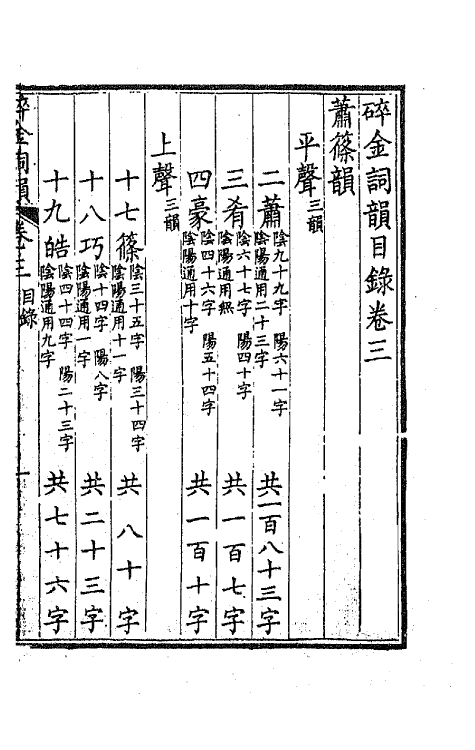 碎金詞韻目錄卷三
蕭篠韻
平聲三韻
二蕭陰九十九字 陽六十一字陰陽通用二十三字 共一百八十三字
三肴陰六十七字 陽四十字陰陽通用無 共一百七字
四豪陰四十六字 陽五十四字陰陽通用十字 共一百十字
上聲三韻
十七篠陰三十五字 陽三十四字陰陽通用十一字 共八十字
十八巧陰十四字 陽八字陰陽通用一字 共二十三字
十九皓陰四十四字 陽二十三字陰陽通用九字 共七十六字
碎金詞韻 卷三 目錄 一